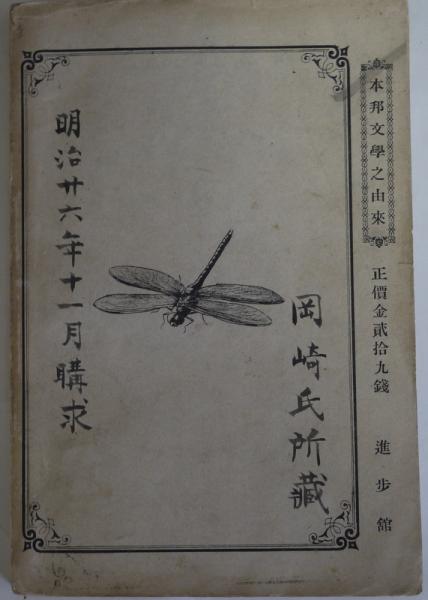 本邦文學之由來
正價金貳拾九錢
進步館
岡崎氏所藏
明治廿六年十一月購求